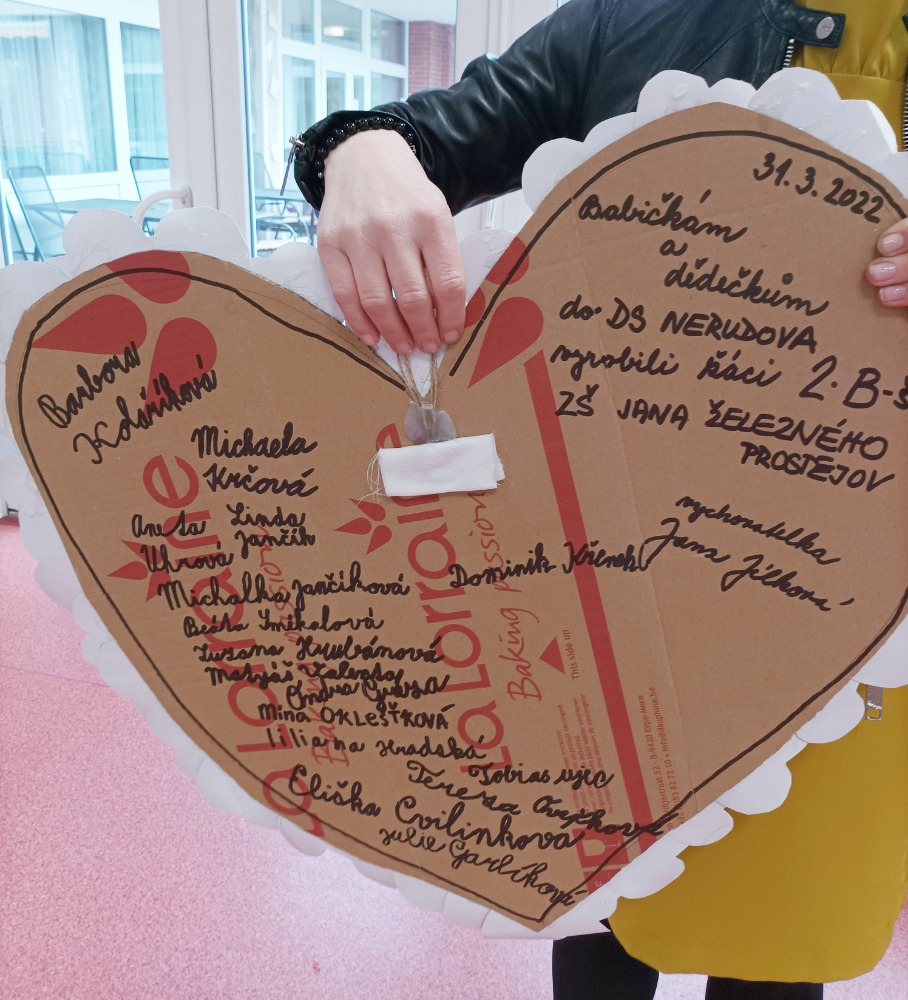 31.3.2022
Babičkám
a
dědečkům
do DS NERUDOVA
vyrobili žáci 2.B-š
ZŠ JANA ŽELEZNÉHO
PROSTĚJOV
vychovatelka
Jana Jílková
Barbora
Kolaříková
Michaela
Krčová
Aneta
Uhrová
Linda
Jančík
Michalka Jančíková
Dominik Křenek
Beáta Smékalová
Zuzana Hrubánová
Matyáš Kaleata
Ondra
Mina OKLEŠŤKOVÁ
liliana Hradská
Tobias ujec
Tereza Ovečková
Eliška Cvilinková
Julie Garlíková
La Lorraine
Baking passion
La Lorraine
Baking passion
This side up